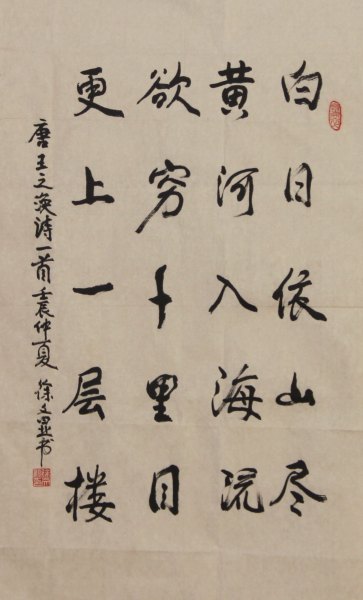 白日依山尽
黄河入海流
欲穷千里目
更上一层楼
唐王之涣诗一首 壬辰仲夏 徐文显书